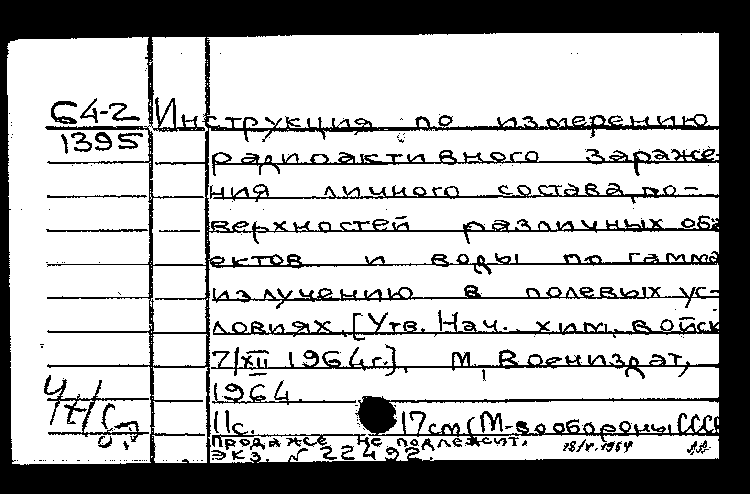 64-2 Инструкция по измерению
1395 радиоактивного зараже-
ния личного состава, по-
верхностей различных объ
ектов и воды по гамма
излучению в полевых ус-
ловиях. [Утв. Нач. хим. войск
7/XII 1964г.]. М., Воениздат,
1964.
11с. 17см (М-во обороны СССР
Продаже не подлежит.
экз. № 22492.